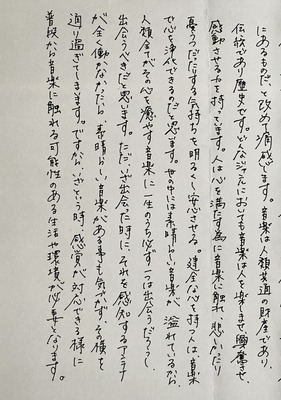 にあるものだ、と改めて痛感します。音楽は人類共通の財産であり、
伝統であり歴史です。どんなジャンルにおいても音楽は人を楽しませ、興奮させ、
感動させる力を持っています。人は心を満たす為に音楽に触れ、悲しかったり
憂うつだったりする気持ちを明るくし安心させる。健全な心を持つ人は、音楽
で心を浄化できるのだと思います。世の中には素晴らしい音楽が溢れているから、
人類全てがその心を癒やす音楽に一生のうち必ず一つは出会うだろうし、
出会うべきだと思います。ただ、いざ出会った時に、それを感知するアンテナ
が全く働かなかったら、素晴らしい音楽がある事も気づかず、その横を
通り過ぎてしまいます。ですから、いざという時、感覚が対応できる様に
普段から音楽に触れる可能性のある生活や環境が必要となります。